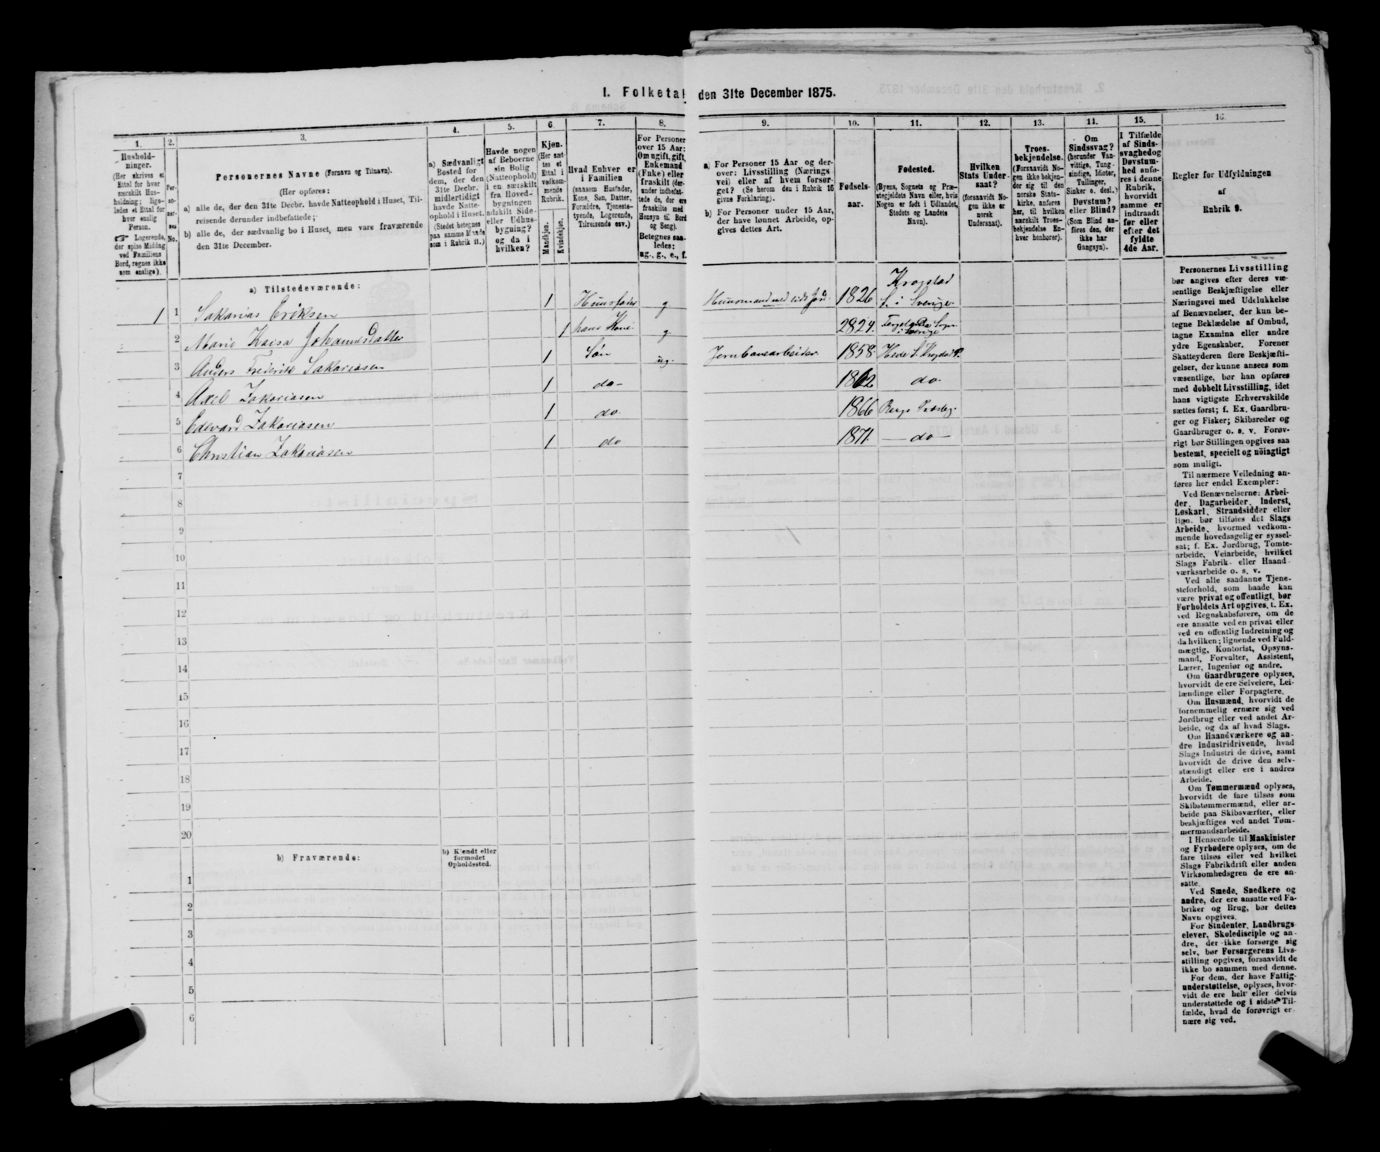 I. Folketal den 31te December 1875.
1.
Husholdninger.
(Her skrives et Ettal for hver særskilt Husholdning; ligeledes et Ettal for hver enslig Person.
☞ Logerende, der spise Middag ved Familiens Bord, regnes ikke som enslige).
2.
Personernes No.
3.
Personernes Navne (Fornavn og Tilnavn).
(Her opføres:
a) alle de, der den 31te Decbr. havde Natteophold i Huset, Tilreisende derunder indbefattede;
b) alle de, der sædvanlig bo i Huset, men vare fraværende den 31te December.
4.
a) Sædvanligt Bosted for dem, der den 31te Decbr. midlertidigt havde Natteophold i Huset. (Stedet betegnes paa samme Maade som i Rubrik 11.)
5.
Havde nogen af Beboerne sin Bolig (Natteophold) i en særskilt fra Hovedbygningen adskilt Side- eller Udhusbygning? og da i hvilken?
6.
Kjøn.
(Her sættes et Ettal i vedkommende Rubrik.
Mandkjøn.
Kvindekjøn.
7.
Hvad Enhver er i Familien
(saasom Husfader, Kone, Søn, Datter, Forældre, Tjenestetyende, Logerende, Tilreisende osv.
8.
For Personer over 15 Aar: Om ugift, gift, Enkemand (Enke) eller fraskilt (derunder indbefattede de, der ere fraskilte med Hensyn til Bord og Seng).
Betegnes saaledes: ug., g., e., f.
9.
a) For Personer 15 Aar og derover: Livsstilling (Næringsvei) eller af hvem forsørget? (Se herom den i Rubrik 16 givne Forklaring).
b) For Personer under 15 Aar, der have lønnet Arbeide, opgives dettes Art.
10.
Fødselsaar.
11.
Fødested.
(Byens, Sognets og Præstegjeldets Navn eller, hvis Nogen er født i Udlandet, Stedets og Landets Navn).
12.
Hvilken Stats Undersaat?
(forsaavidt Nogen ikke er norsk Undersaat).
13.
Troesbekjendelse.
(Forsaavidt Nogen ikke bekjender sig til den norske Statskirke, anføres her, til hvilken særskilt Troesbekjendelse Enhver henhører).
14.
Om Sindssvag?
(herunder Vanvittige, Tungsindige, Idioter, Tullinger, Sinker o. desl.)
Døvstum? eller Blind?
(Som Blind anføres den, der ikke har Gangsyn).
15.
I Tilfælde af Sindssvaghed og Døvstumhed anføres i denne Rubrik, hvorvidt samme er indtraadt før eller efter det fyldte 4de Aar.
16.
Regler for Udfyldningen
af
Rubrik 9.
a) Tilstedeværende:
1 1 Sakarias Eriksen 1 Huusfader g Huusmand med Jord 1826 Krogstad S. i Sverige
2 Maria Kaisa Johannesdatter 1 hans Kone g. 1824
3 Anders Frederik Sakariasen 1 Søn ug. Jernbanearbeider 1858
4 Axel Zakariasen 1 do 1862 do
5 Edevard Zakariasen 1 do 1866
6 Christian Zakariasen 1 do 1871 do
7
8
9
10
11
12
13
14
15
16
17
18
19
20
b) Fraværende:
b) Kjendt eller formodet Opholdssted.
1
2
3
4
5
6
Personernes Livsstilling
bør angives efter deres væ-
sentlige Beskjæftigelse eller
Næringsvei med Udelukkelse
af Benævnelser, der kun be-
tegne Beklædelse af Ombud,
tagne Examina eller andre
ydre Egenskaber. Forener
Skatteyderen flere Beskjæfti-
gelser, der kunne ansees som
væsentlige, bør han opføres
med dobbelt Livsstilling, idet
hans vigtigste Erhvervskilde
sættes først; f. Ex. Gaardbru-
ger og Fisker; Skibsreder og
Gaardbruger o. s. v. Forøv-
rigt bør Stillingen opgives saa
bestemt, specielt og nøiagtigt
som muligt.
Til nærmere Veiledning an-
føres her endel Exempler:
Ved Benævnelserne: Arbei-
der, Dagarbeider, Inderst,
Løskarl, Strandsidder eller
lign. bør tilføies det Slags
Arbeide, hvormed vedkom-
mende hovedsagelig er syssel-
sat; f. Ex. Jordbrug, Tomte-
arbeide, Veiarbeide, hvilket
Slags Fabrik- eller Haand-
værksarbeide o. s. v.
Ved alle saadanne Tjene-
steforhold, som baade kan
være privat og offentligt, bør
Forholdets Art opgives, t. Ex.
ved Regnskabsførere, om de
ere ansatte ved en privat eller
ved en offentlig Indretning og
da hvilken; lignende ved Fuld-
mægtig, Kontorist, Opsyns-
mand, Forvalter, Assistent,
Lærer, Ingeniør og andre.
Om Gaardbrugere oplyses,
hvorvidt de ere Selveiere, Lei-
lændinge eller Forpagtere.
Om Husmænd, hvorvidt de
fornemmelig ernære sig ved
Jordbrug eller ved andet Ar-
beide, og da af hvad Slags.
Om Haandværkere og an-
dre Industridrivende, hvad
Slags Industri de drive, samt
hvorvidt de drive den selv-
stændigt eller ere i andres
Arbeide.
Om Tømmermænd oplyses,
hvorvidt de fare tilsøs som
Skibstømmermænd, eller ar-
beide paa Skibsværfter, eller
beskjæftiges ved andet Tøm-
mermandsarbeide.
I Henseende til Maskinister
og Fyrbødere oplyses, om de
fare tilsøs eller ved hvilket
Slags Fabrikdrift eller anden
Virksomhedsgren de ere an-
satte.
Ved Smede, Snedkere og
andre, der ere ansatte ved Fa-
briker og Brug, bør dettes
Navn opgives.
For Studenter, Landbrugs-
elever, Skoledisciple og an-
dre, der ikke forsørge sig
selv, bør Forsørgerens Livs-
stilling opgives, forsaavidt de
ikke bo sammen med denne.
For dem, der have Fattig-
understøttelse, oplyses, hvor-
vidt de ere helt eller delvis
understøttede og i sidste Til-
fælde, hvad de forøvrigt er-
nære sig ved.